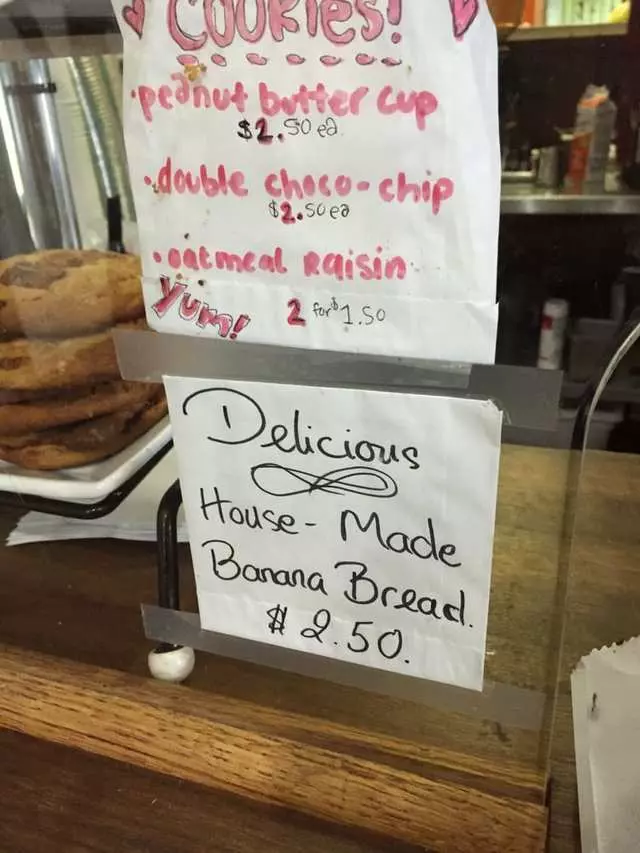 COOKIES!
• peanut butter cup
$2.50 ea.
• double choco-chip
$2.50 ea
• oatmeal Raisin
Yum! 2 for $1.50
Delicious
House-Made
Banana Bread.
$2.50.